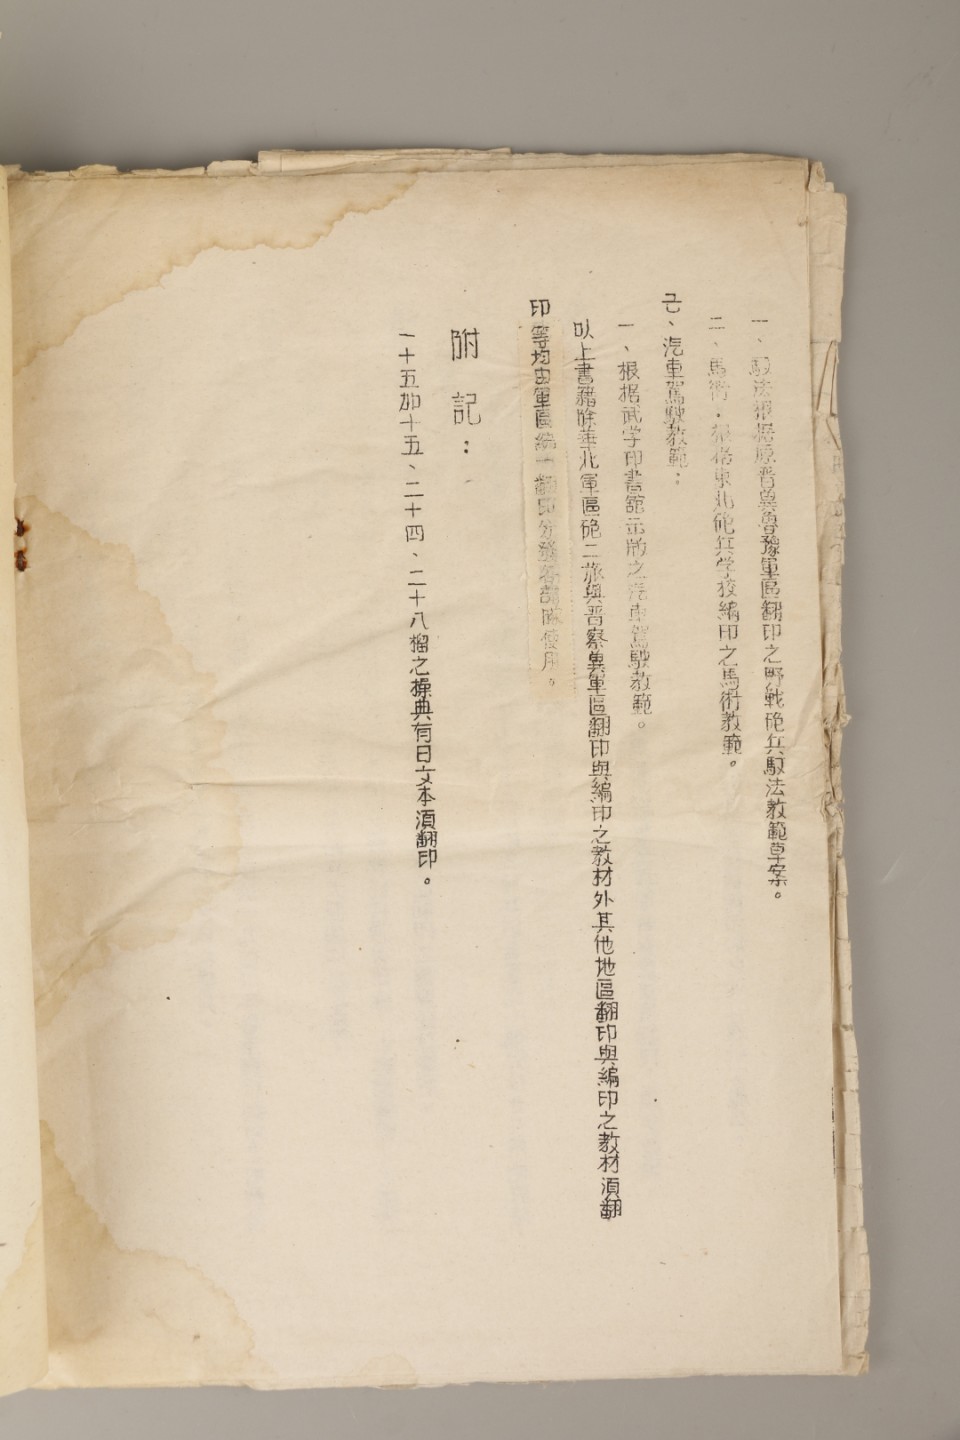 一、馭法根据原晋冀魯豫軍區翻印之野戰砲兵馭法教範草案。
二、馬術．根据東北砲兵学校編印之馬術教範。
己、汽車駕駛教範：
一、根据武学印書舘示版之汽車駕駛教範。
以上書籍除華北軍區砲二旅與晋察冀軍區翻印與編印之教材外其他地區翻印與編印之教材須翻
印等均由軍區統一翻印分發各部隊使用。
附記：
一十五加十五、二十四、二十八榴之操典有日文本須翻印。